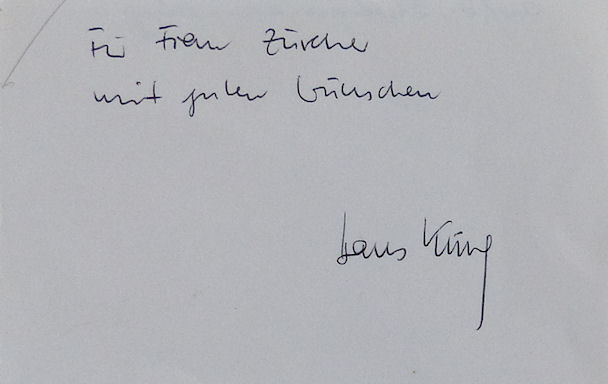 Für Frau Zürcher
mit guten Wünschen
Hans Küng